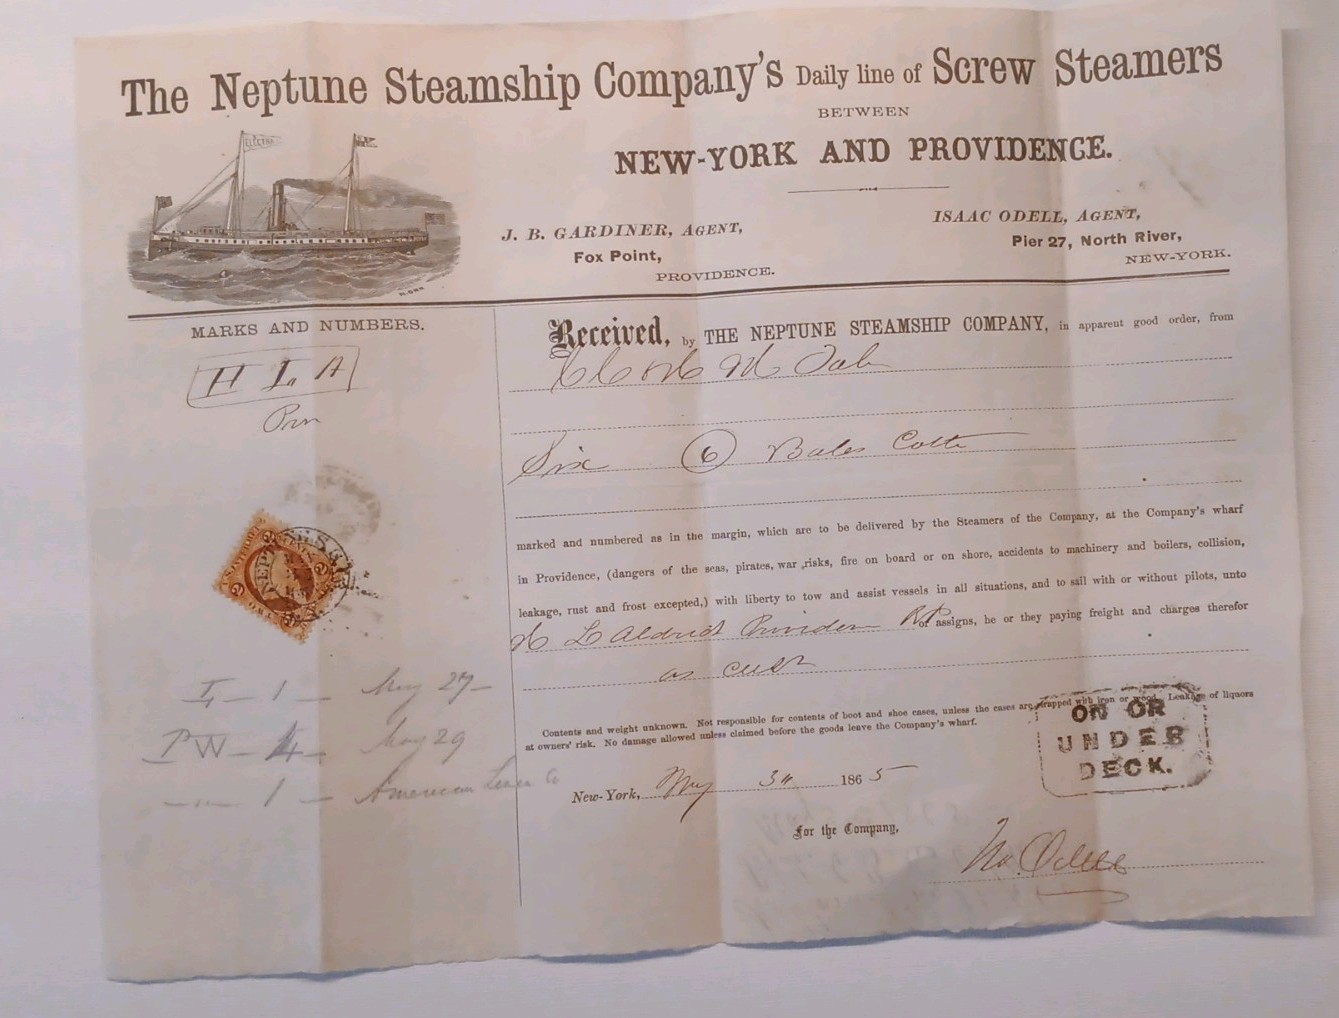 The Neptune Steamship Company's Daily line of Screw Steamers
BETWEEN
NEW-YORK AND PROVIDENCE.
ELECTRA
J. B. GARDINER, AGENT,
Fox Point,
PROVIDENCE.
ISAAC ODELL, AGENT,
Pier 27, North River,
NEW-YORK.
MARKS AND NUMBERS.
H L A
Prov
Received, by THE NEPTUNE STEAMSHIP COMPANY, in apparent good order, from
Six 6 Bales Cotton
marked and numbered as in the margin, which are to be delivered by the Steamers of the Company, at the Company's wharf
in Providence, (dangers of the seas, pirates, war risks, fire on board or on shore, accidents to machinery and boilers, collision,
leakage, rust and frost excepted,) with liberty to tow and assist vessels in all situations, and to sail with or without pilots, unto
H L Aldrich Providence R.I. or assigns, he or they paying freight and charges therefor
as cust
Contents and weight unknown. Not responsible for contents of boot and shoe cases, unless the cases are strapped with iron or wood. Leakage of liquors
at owners' risk. No damage allowed unless claimed before the goods leave the Company's wharf.
ON OR
UNDER
DECK.
New-York, May 1865
For the Company,
Odell
1 May 27
PW 4 May 29
1 American